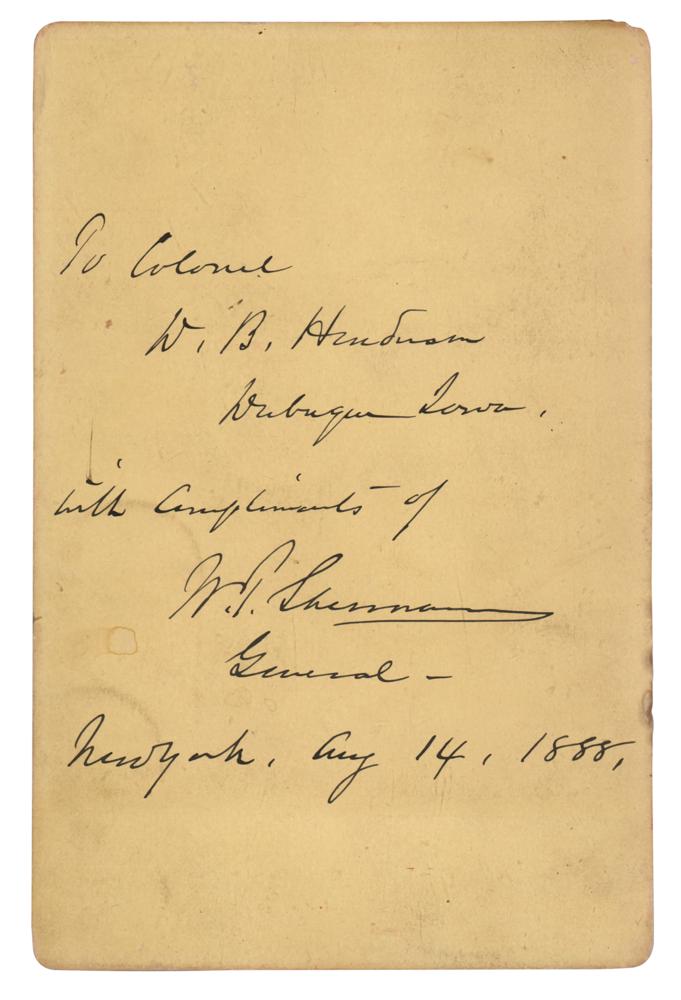 To Colonel
D. B. Henderson
Dubuque Iowa,
with Compliments of
W. T. Sherman
General —
New York, Aug 14, 1888,